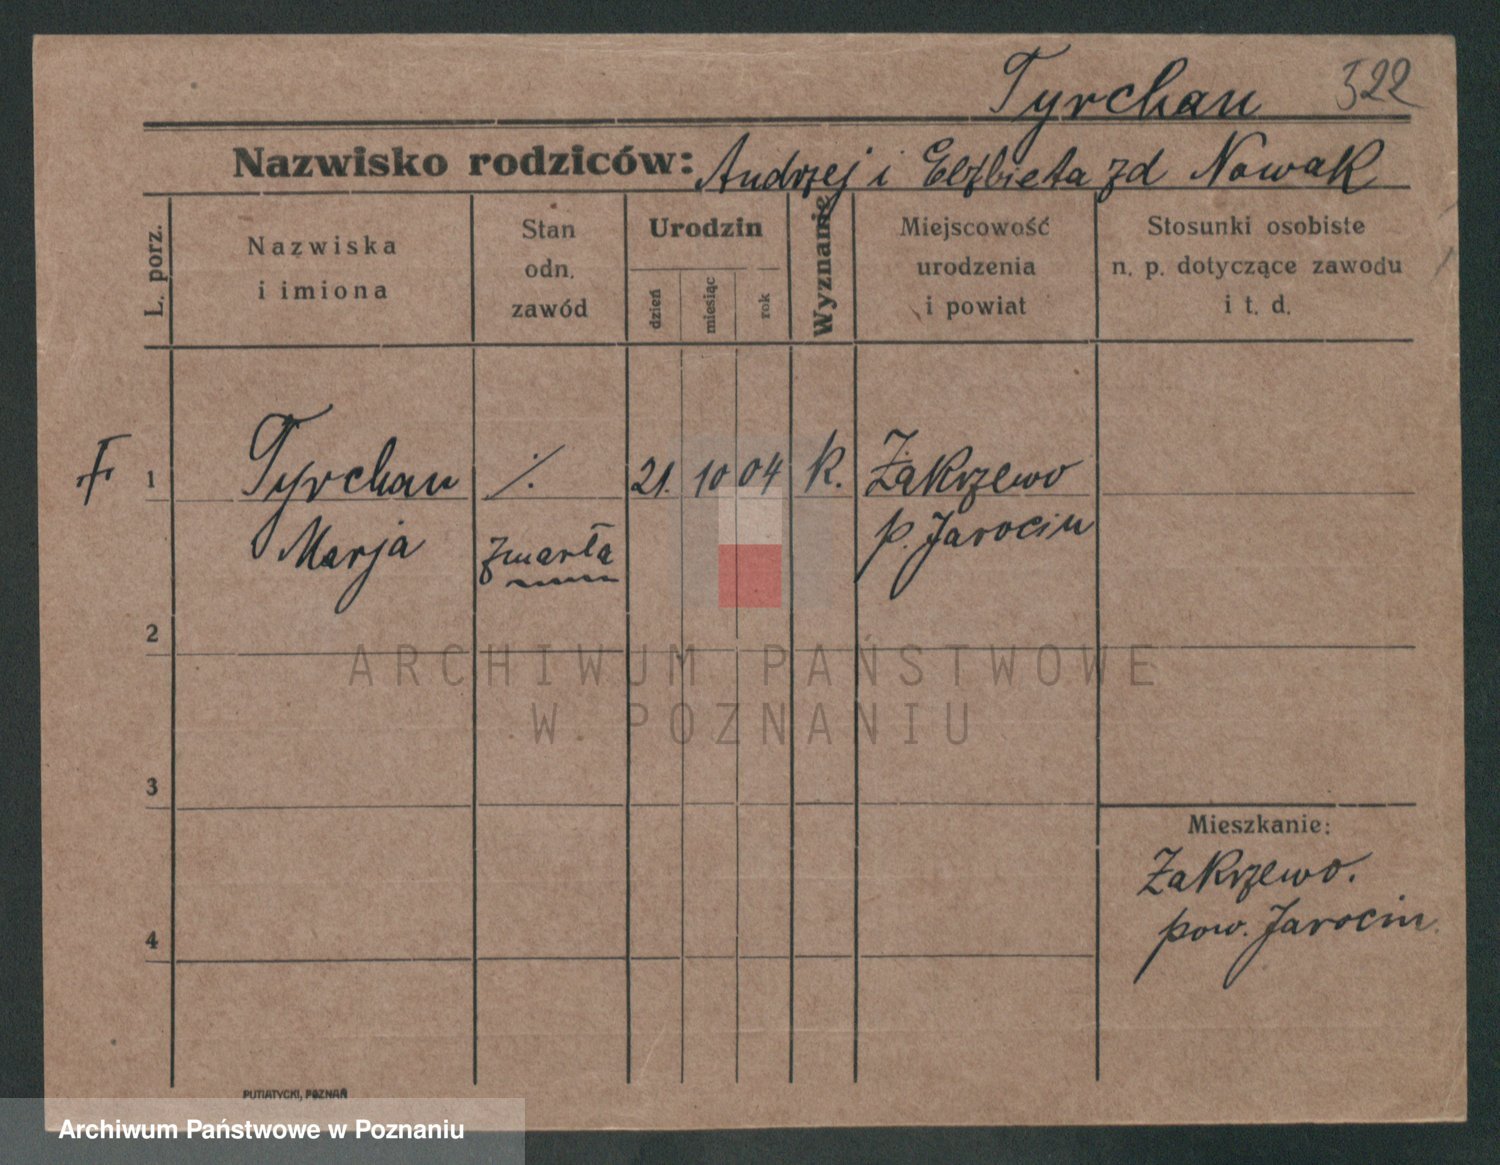 Tyrchan 322
Nazwisko rodziców: Andrzej i Elżbieta zd Nowak
L. porz.
Nazwiska
i imiona
Stan
odn.
zawód
Urodzin
dzień
miesiąc
rok
Wyznanie
Miejscowość
urodzenia
i powiat
Stosunki osobiste
n. p. dotyczące zawodu
i t. d.
1 Tyrchan ./. 21. 10 04 k. Zakrzewo
Marja zmarła p. Jarocin
2
3
4
Mieszkanie:
Zakrzewo.
pow. Jarocin.
PUTIATYCKI, POZNAŃ
ARCHIWUM PAŃSTWOWE
W POZNANIU
Archiwum Państwowe w Poznaniu